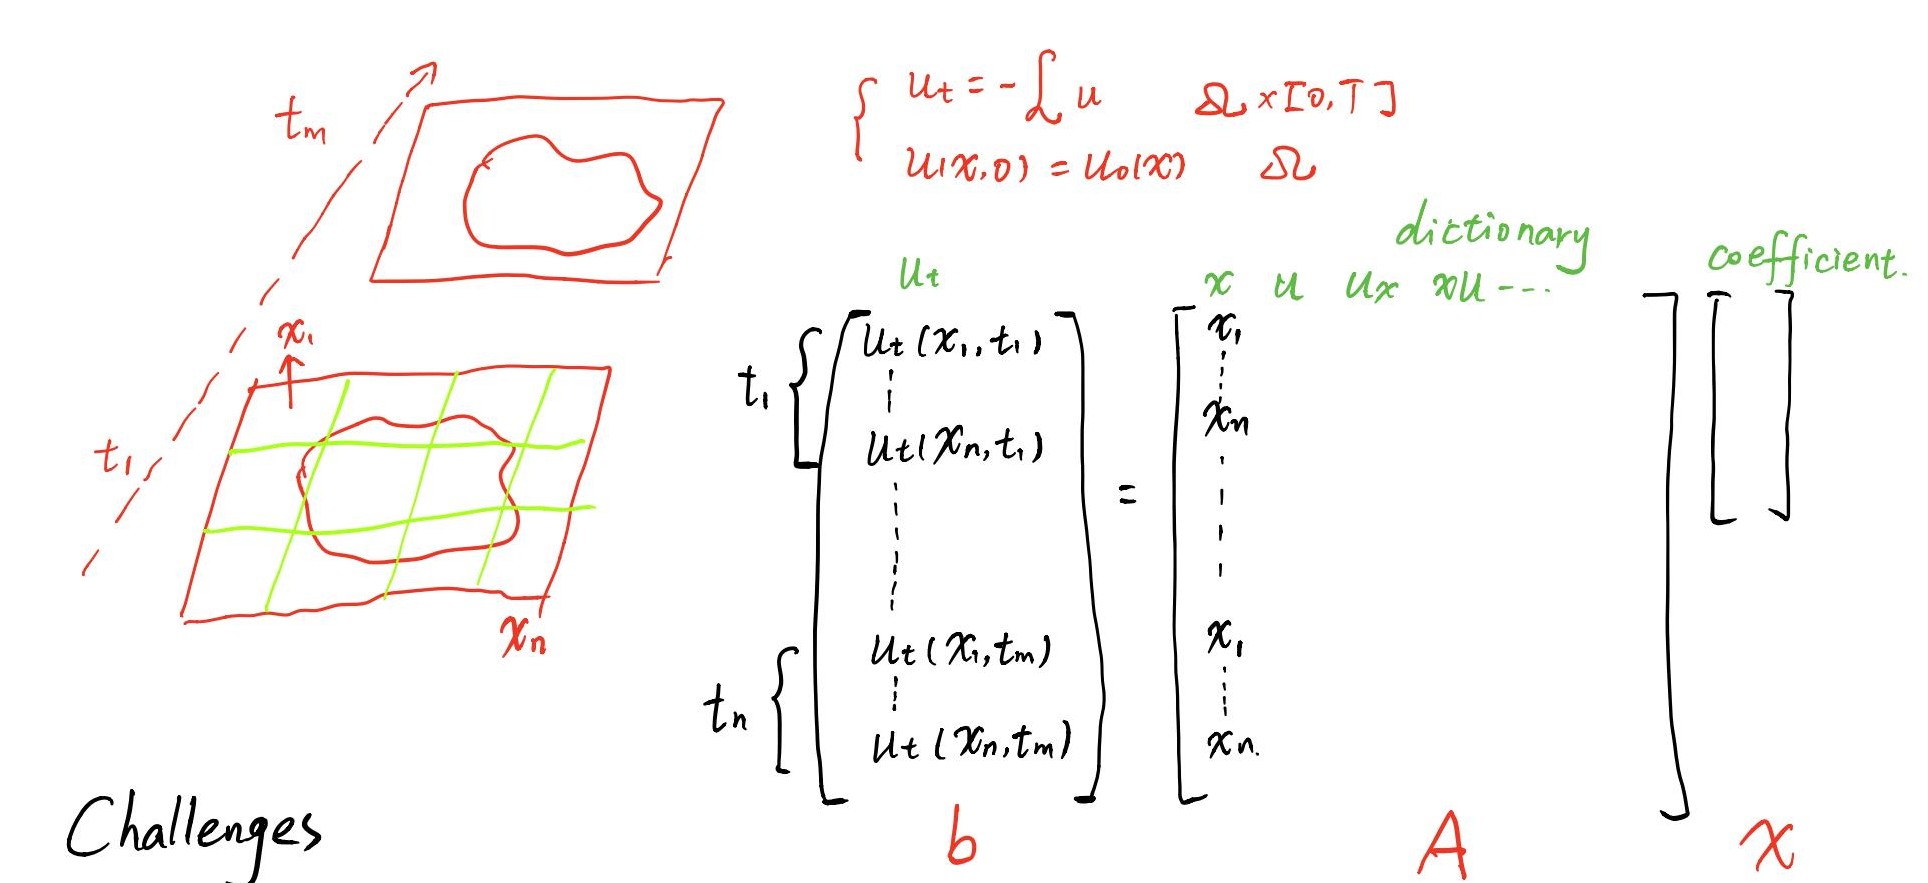 tm
{ ut = -ℒu Ω×[0,T]
u(x,0) = u0(x) Ω
dictionary
coefficient.
ut
x u ux xu ---
x1
t1
xn
t1 { ut(x1,t1)
ut(xn,t1)
=
x1
xn
tn { ut(x1,tm)
ut(xn,tm)
x1
xn.
b
A
x
Challenges